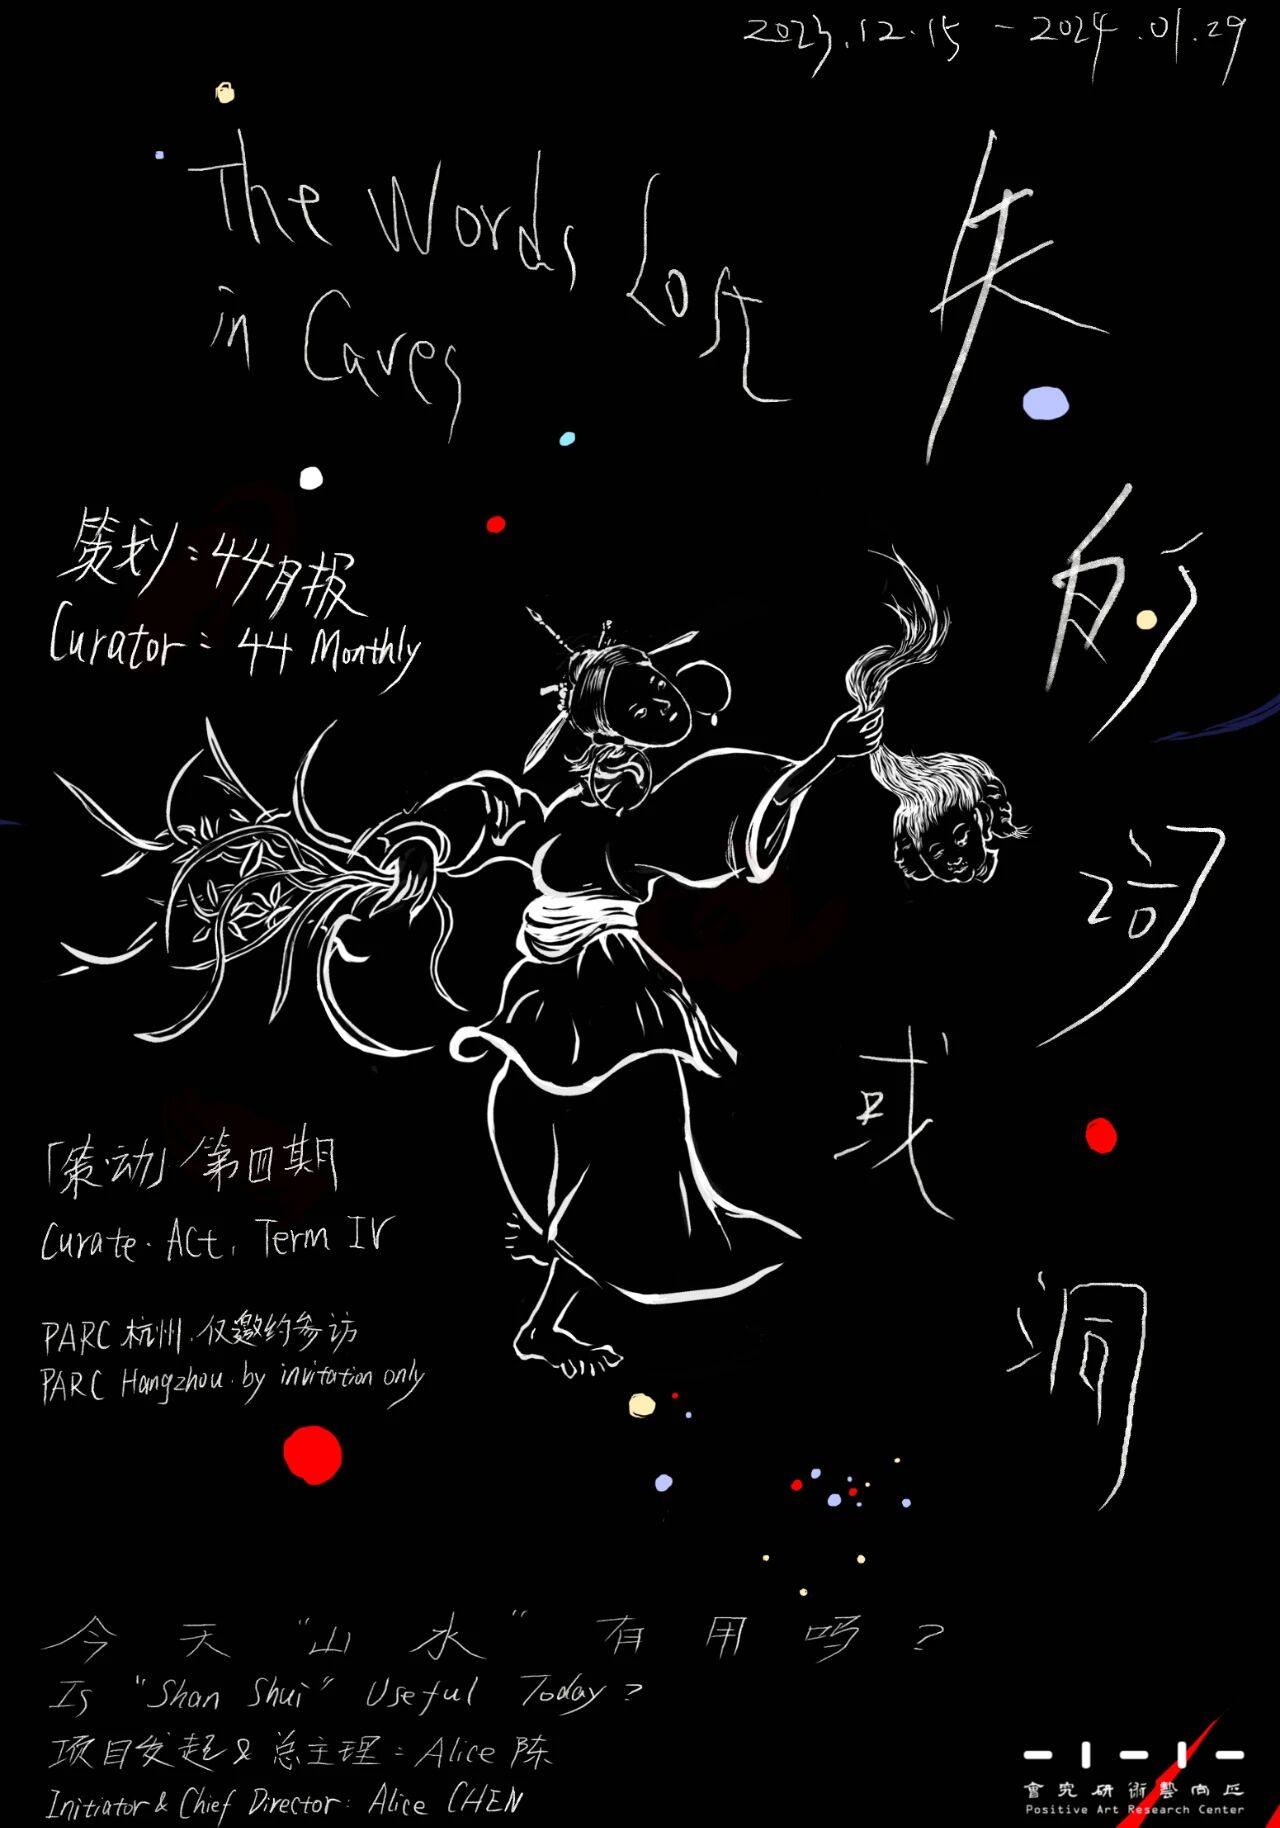 2023.12.15 – 2024.01.29
The Words Lost
in Caves
失的词或洞
策划：44月报
Curator: 44 Monthly
「策·动」第四期
Curate·Act, Term IV
PARC 杭州·仅邀约参访
PARC Hangzhou·by invitation only
今天“山水”有用吗？
Is “Shan Shui” Useful Today?
项目发起 & 总主理：Alice 陈
Initiator & Chief Director: Alice CHEN
會究研術藝向正
Positive Art Research Center